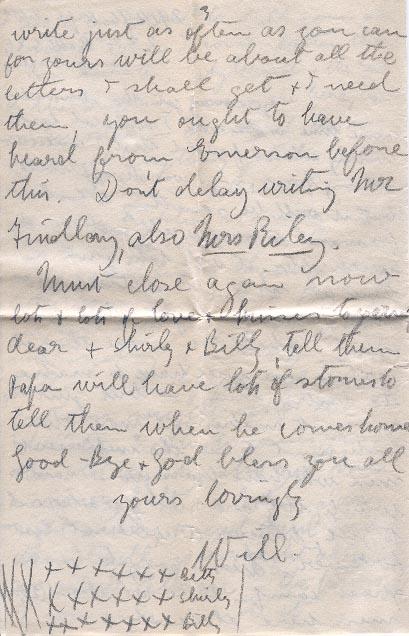 3
write just as often as you can
for yours will be about all the
letters I shall get & I need
them, you ought to have
heard from Emerson before
this. Don't delay writing Mr
Findlay, also Mrs Riley.
Must close again now
lots & lots of love & kisses to you
dear & Shirly & Billy, tell them
Papa will have lots of stories to
tell them when he comes home
Good-Bye & God bless you all
yours lovingly
Will.
XX x x x x x x Betty
x x x x x x Shirly
x x x x x x x Billy